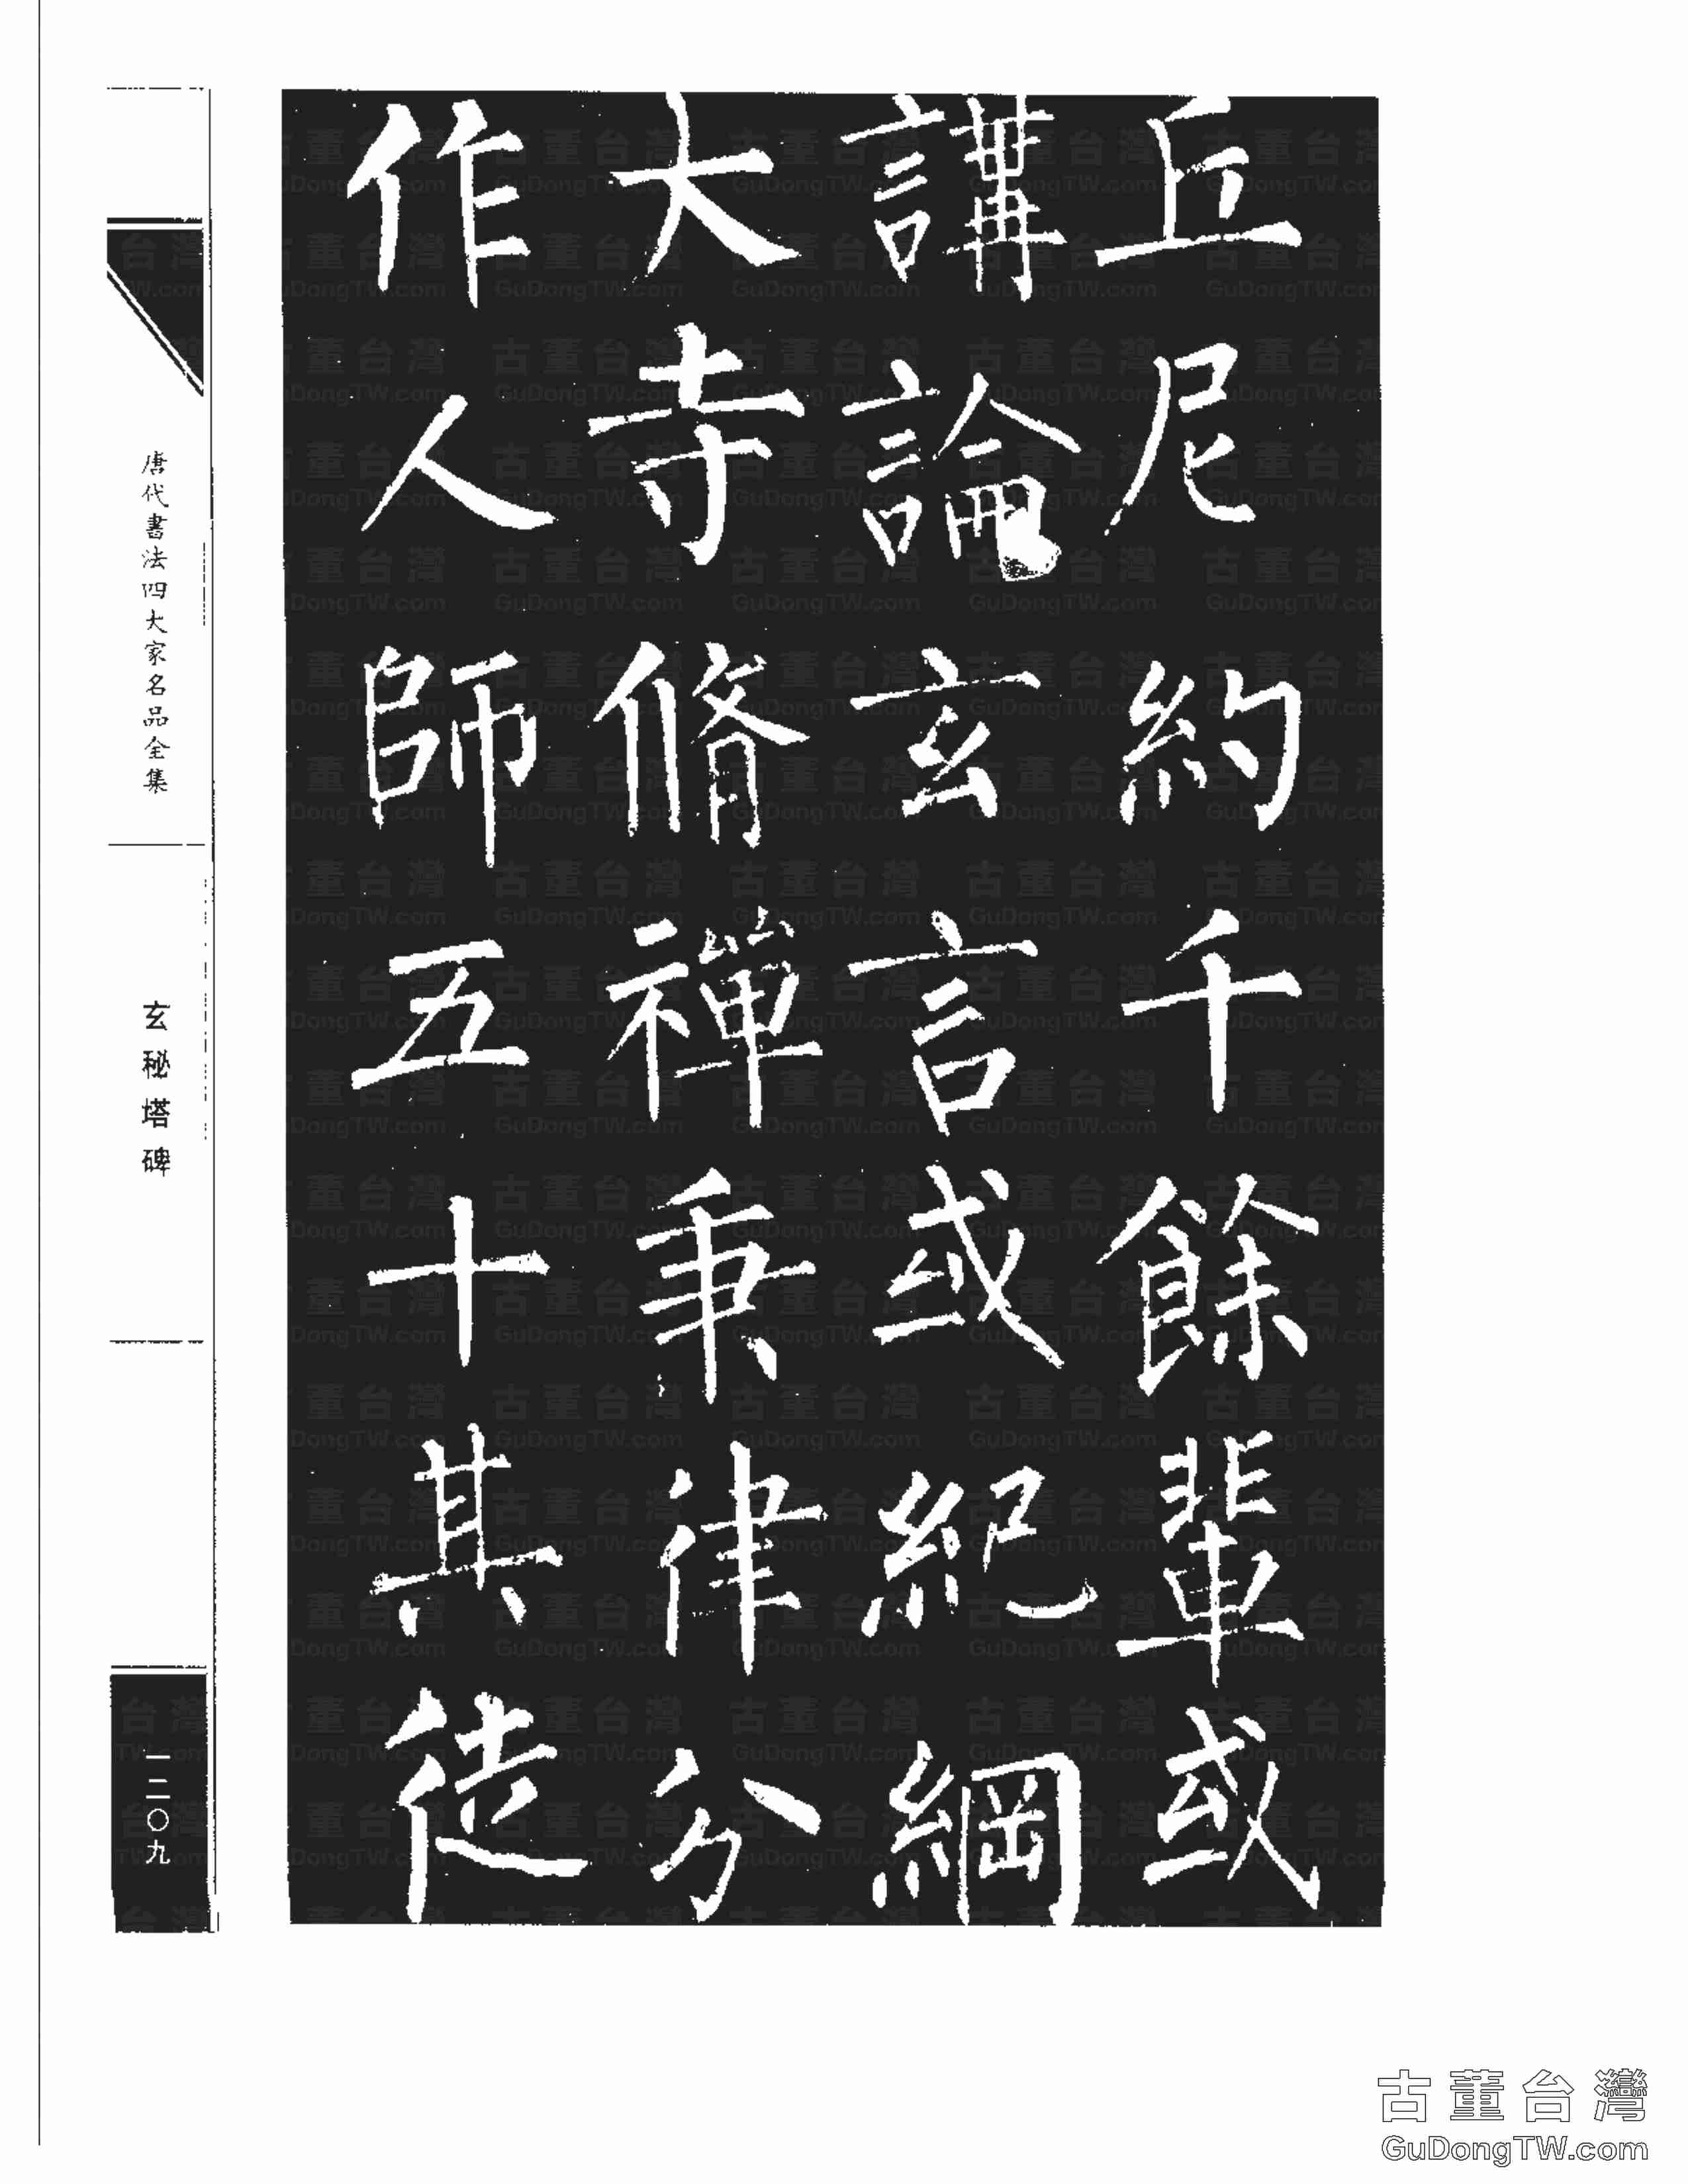 丘尼約千餘輩或
講論玄言或紀綱
大寺脩禪秉律分
作人師五十其徒
唐代書法四大家名品全集
玄秘塔碑
一二〇九
古董台灣
GuDongTW.com